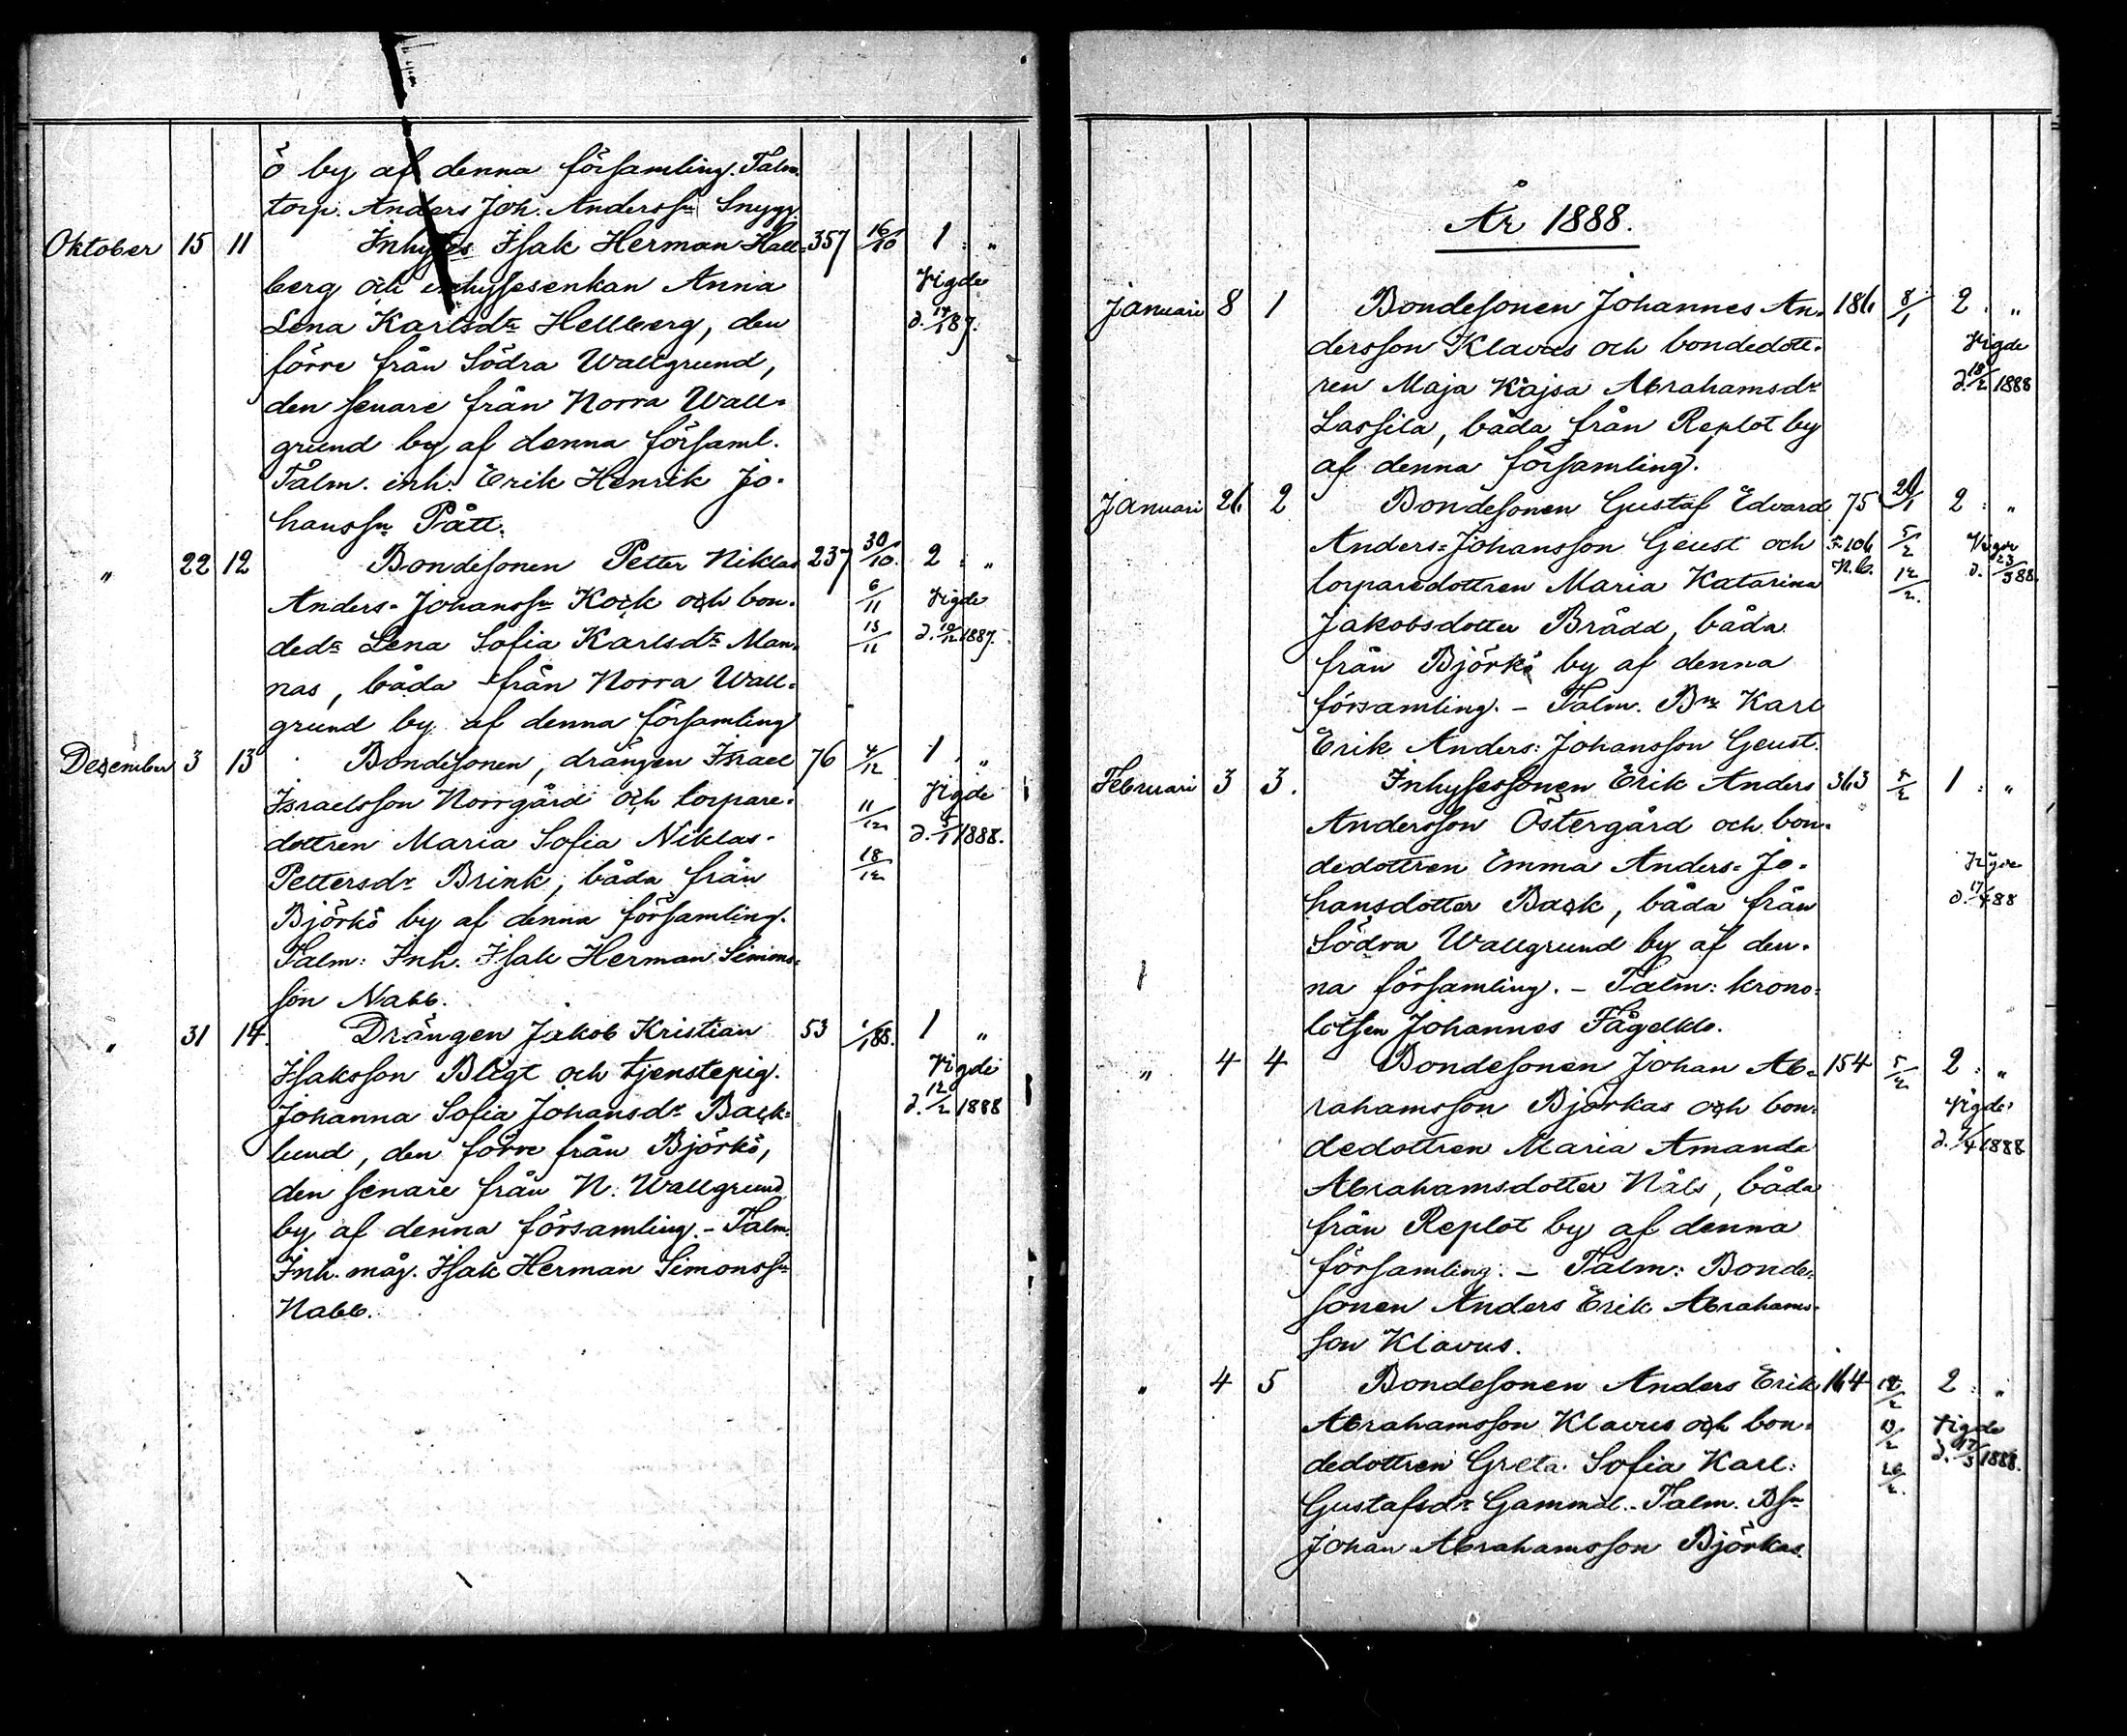 ö by af denna församling. Talm.
torp. Anders Joh. Anderss:n Snygg.
Oktober 15 11 Inhyses Isak Herman Hall- 357 16/10 1 : „
berg och inhysesenkan Anna Vigde
Lena Karlsd:r Hellberg, den d. 14/11 87.
förre från Södra Wallgrund,
den senare från Norra Wall-
grund by af denna församl.
Talm. inh. Erik Henrik Jo-
hanss:n Pått.
„ 22 12 Bondesonen Petter Niklas 237 30/10. 2 : „
Anders-Johanss:n Kock och bon- 6/11 Vigde
ded:r Lena Sofia Karlsd:r Man- 13/11 d. 10/12 1887.
nas, båda från Norra Wall-
grund by af denna församling
December 3 13 Bondesonen, drängen Israel 76 4/12 1 : „
Israelsson Norrgård och torpare- 11/12 Vigde
dottren Maria Sofia Niklas- d. 5/1 1888.
Pettersd:r Brink, båda från 18/12
Björkö by af denna församling.
Talm: Inh. Isak Herman Simons-
son Nabb.
„ 31 14. Drängen Jakob Kristian 53 1/1 88. 1 „
Isaksson Bligt och tjenstepig. Vigde
Johanna Sofia Johansd:r Back- d. 12/2 1888
lund, den förre från Björkö,
den senare från N. Wallgrund
by af denna församling. - Talm.
Inh. måg. Isak Herman Simonss:n
Nabb.
År 1888.
Januari 8 1 Bondesonen Johannes An- 186 8/1 2 : „
dersson Klavus och bondedott- Vigde
ren Maja Kajsa Abrahamsd:r d. 18/2 1888
Lassila, båda från Replot by
af denna församling.
Januari 26 2 Bondesonen Gustaf Edvard 75 29/1 2 : „
Anders-Johansson Geust och F. 106 5/2 Vigde
torparedottren Maria Katarina N.B. 12/2. d. 23/3 88.
Jakobsdotter Brådd, båda
från Björkö by af denna
församling. - Talm. B:n Karl
Erik Anders-Johansson Geust.
Februari 3 3. Inhysessonen Erik Anders 363 5/2 1 : „
Andersson Östergård och bon-
dedottren Emma Anders-Jo- Vigde
hansdotter Back, båda från d. 17/4 88
Södra Wallgrund by af den-
na församling. - Talm: krono-
lotsen Johannes Fågelklo.
„ 4 4 Bondesonen Johan Ab- 154 5/2 2 : „
rahamsson Björkas och bon- Vigde
dedottren Maria Amanda d. 7/4 1888
Abrahamsdotter Nåls, båda
från Replot by af denna
församling. - Talm: Bonde-
sonen Anders Erik Abrahams-
son Klavus.
„ 4 5 Bondesonen Anders Erik 164 12/2 2 : „
Abrahamsson Klavus och bon- 19/2 Vigde
dedottren Greta Sofia Karl- d. 17/3 1888.
Gustafsd:r Gammal. - Talm. Bs:n 26/2.
Johan Abrahamsson Björkas.